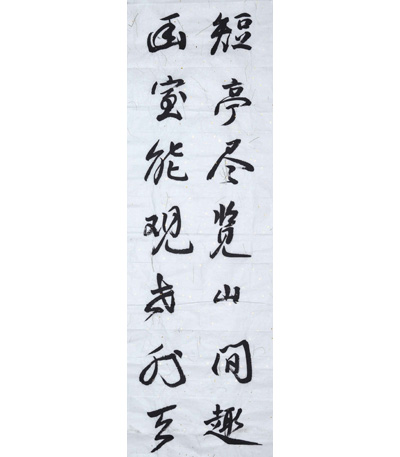 短亭尽览山间趣
画室能观世外天